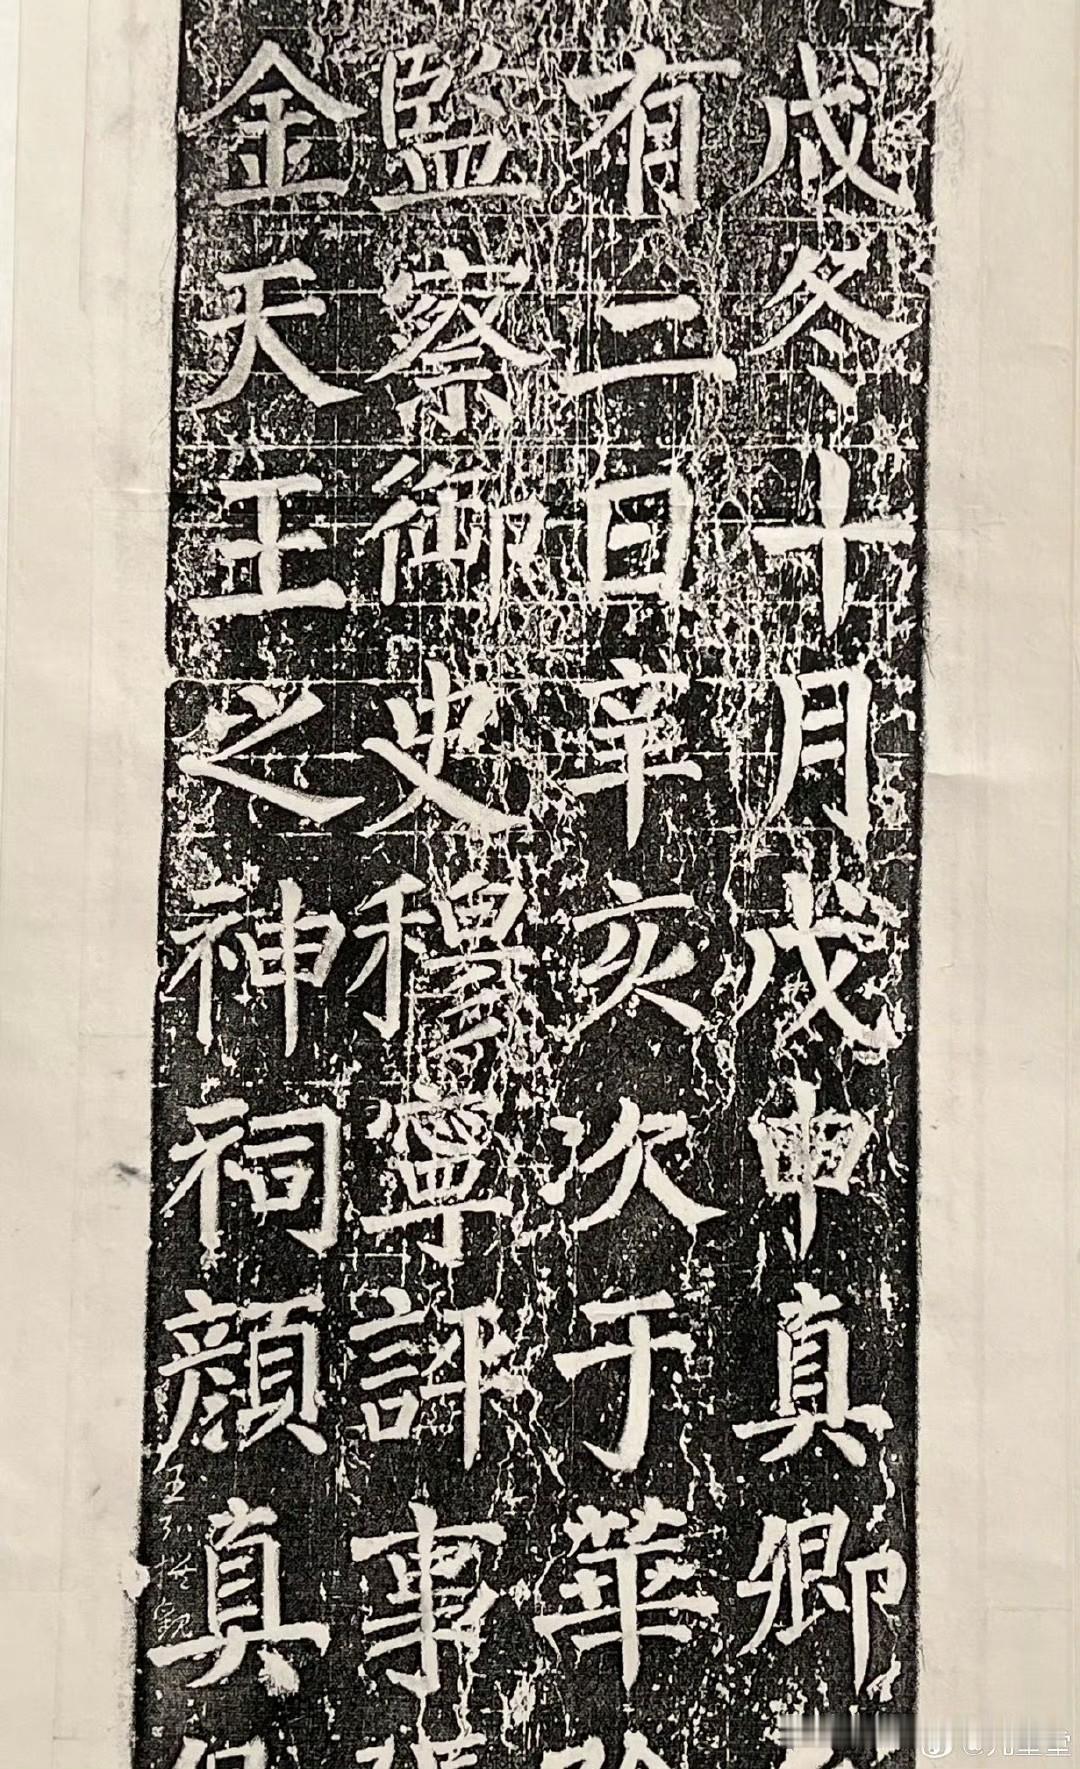 戊冬十月戊申真卿
有二日辛亥次于華
監察御史穆寧評事
金天王之神祠顏真